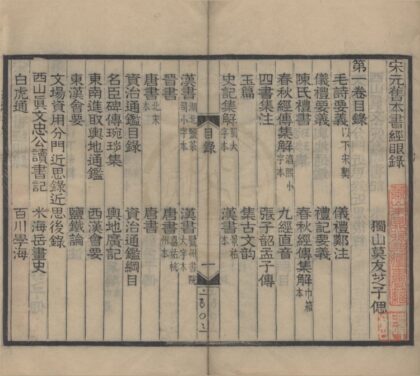 宋元舊本書經眼錄
獨山莫友芝子偲
第一卷目錄
毛詩要義 以下宋槧 儀禮鄭注
儀禮要義 禮記要義
陳氏禮書 春秋經傳集解 巾箱本
春秋經傳集解 九經直音
四書集注 張子韶孟子傳
玉篇 集古文韻
史記集解 蜀大字本 漢書 景祐本
目錄
一
漢書 湖北鹽茶司小字本 漢書 鷺州書院大字本
晉書 唐書 嘉祐杭州本
唐書 北宋本 唐書
資治通鑑目錄 資治通鑑綱目
名臣碑傳琬琰集 輿地廣記
東南進取輿地通鑑 西漢會要
東漢會要 鹽鐵論
文場資用分門近思錄近思後錄
西山眞文忠公讀書記 米海岳畫史
白虎通 百川學海